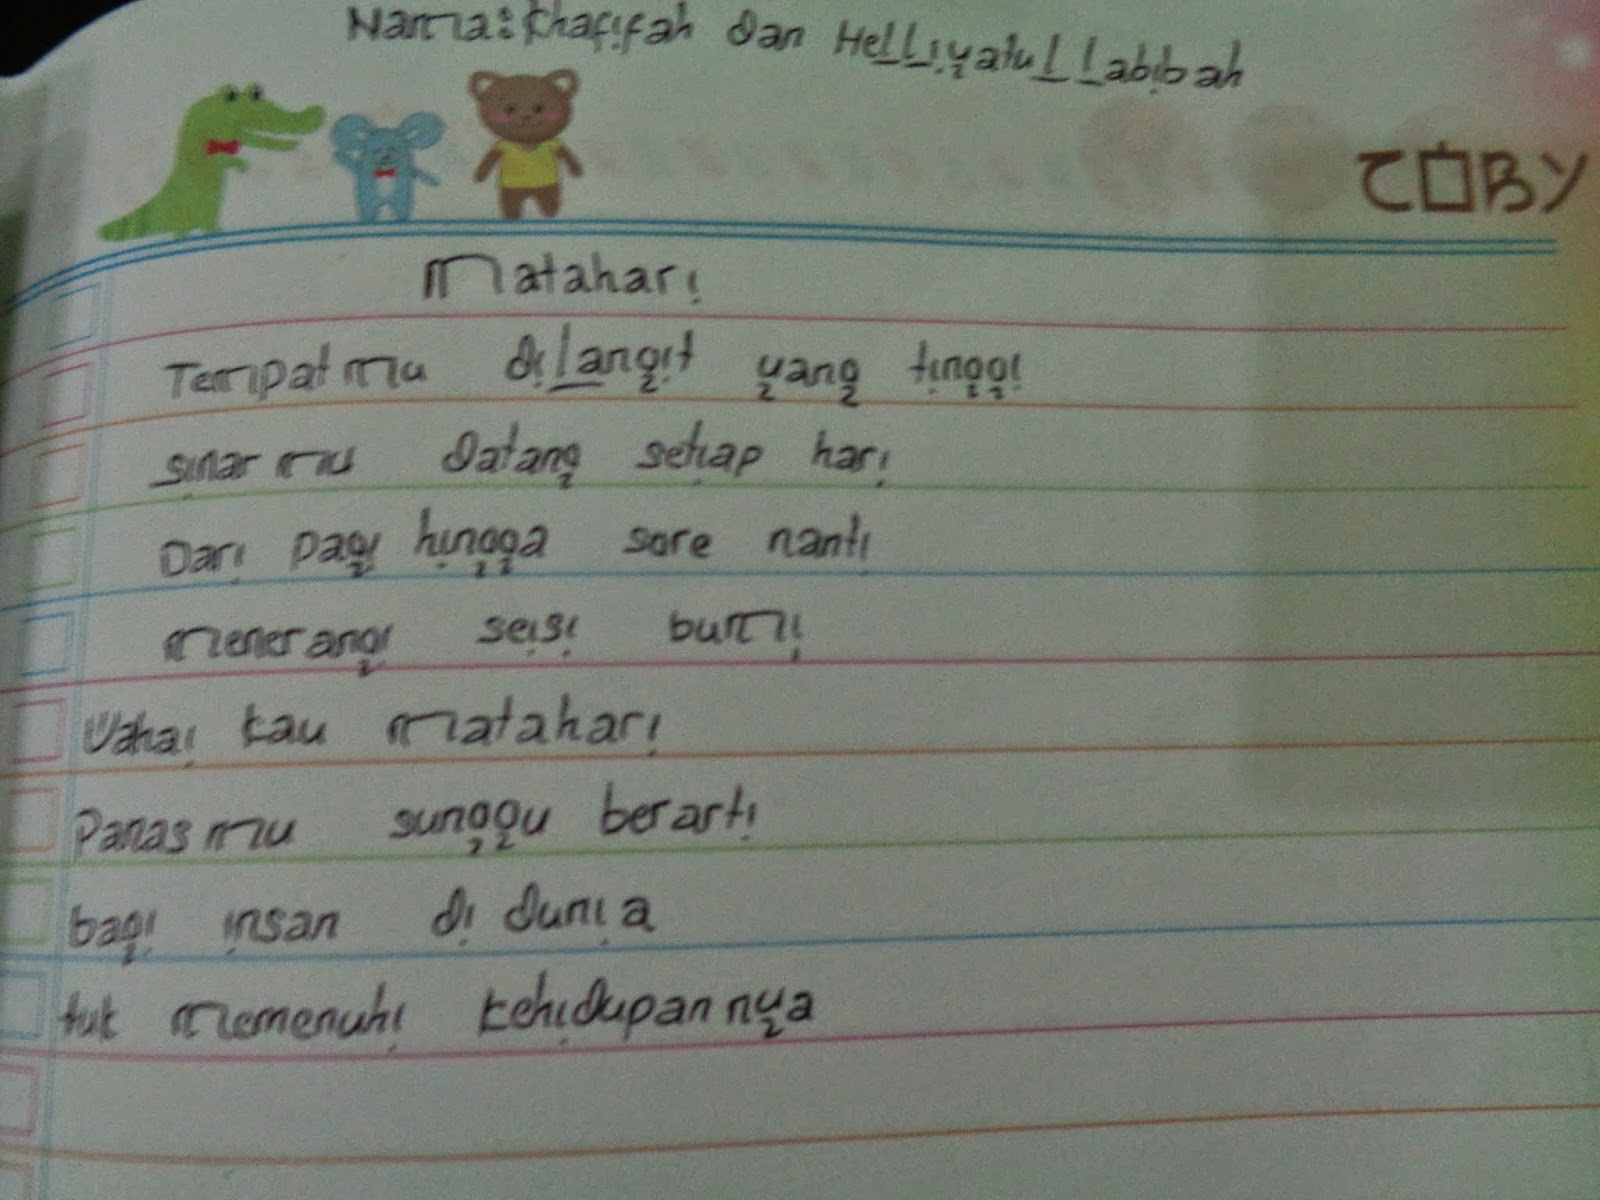 Nama: Khafifah dan Helliyatul Labibah
TOBY
Matahari
Tempat mu dilangit yang tinggi
sinar mu datang setiap hari
Dari pagi hingga sore nanti
menerangi seisi bumi
Wahai kau matahari
Panas mu sunggu berarti
bagi insan di dunia
tuk memenuhi kehidupan nya